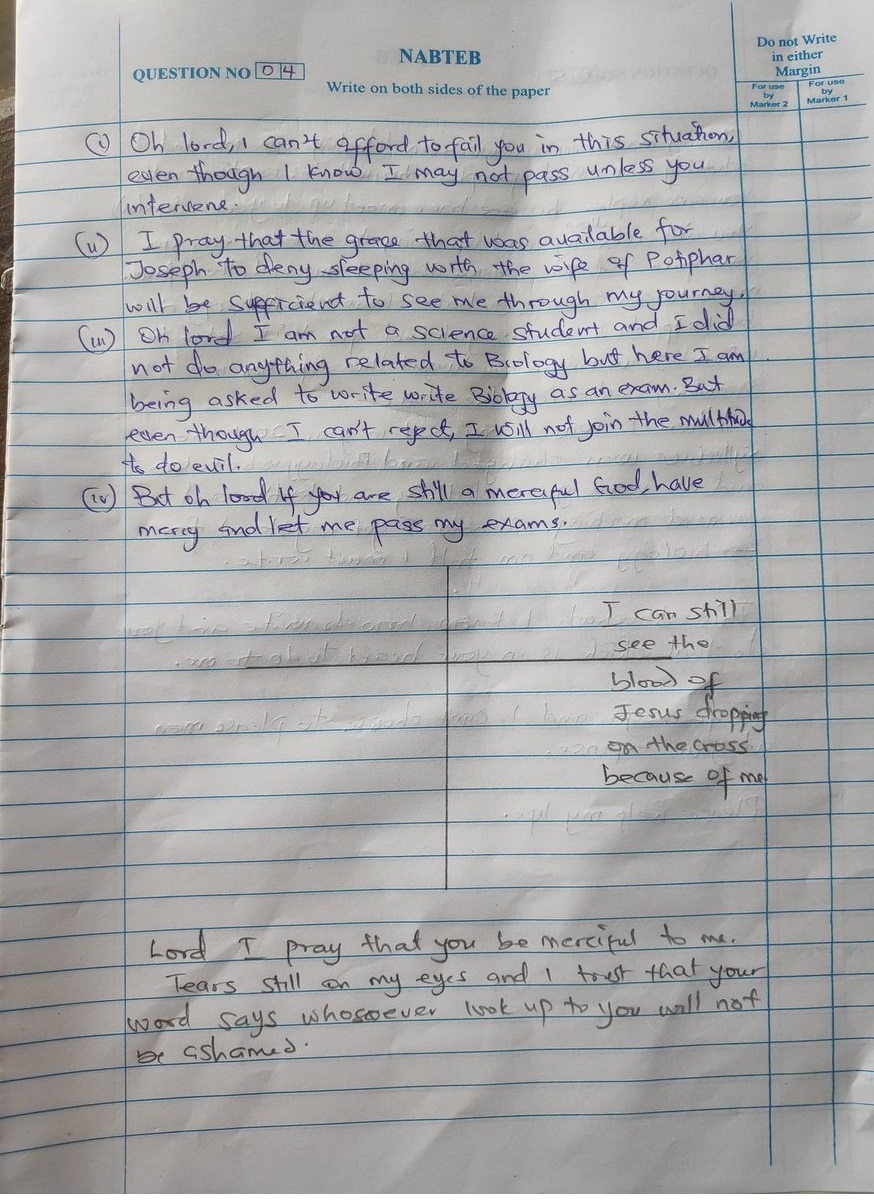 NABTEB
QUESTION NO 04
Write on both sides of the paper
Do not Write
in either
Margin
For use
by
Marker 2
For use
by
Marker 1
(i) Oh lord, I can't afford to fail you in this situation,
even though I know I may not pass unless you
intervene.
(ii) I pray that the grace that was available for
Joseph to deny sleeping with the wife of Potiphar
will be sufficient to see me through my journey.
(iii) Oh lord I am not a science student and I did
not do anything related to Biology but here I am
being asked to write write Biology as an exam. But
even though I can't reject, I will not join the multitude
to do evil.
(iv) But oh lord if you are still a merciful God, have
mercy and let me pass my exams.
I can still
see the
blood of
Jesus dropping
on the cross
because of me
Lord I pray that you be merciful to me.
Tears still on my eyes and I trust that your
word says whosoever look up to you will not
be ashamed.